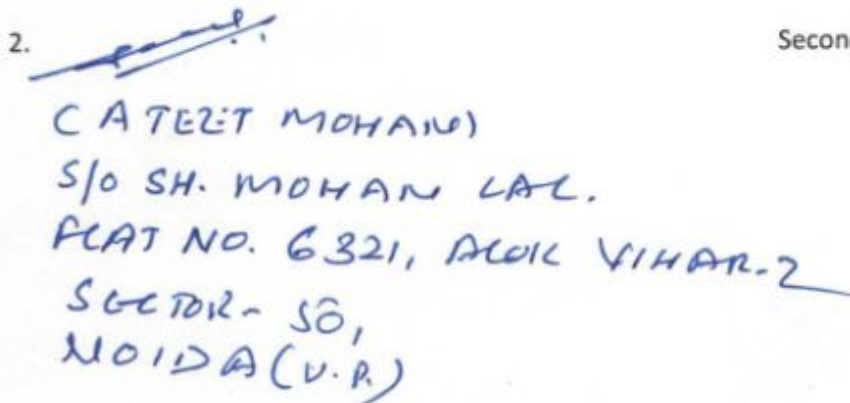 2. Secon
MOHAN)
S/O SH. MOHAN LAL.
FLAT NO. 6321, ALOK VIHAR-2
SECTOR- 50,
NOIDA (U.P.)